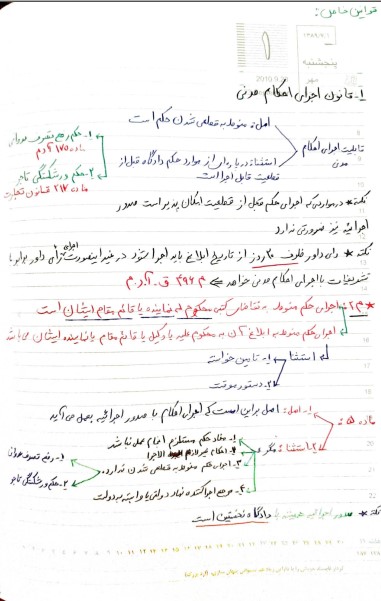 قوانین خاص:
۱
پنجشنبه
مهر
2010
۱- قانون اجرای احکام مدنی
قابلیت اجرای احکام مدنی
اصل: منوط به قطعی شدن حکم است
استثناء: در پاره ای از موارد حکم دادگاه قبل از قطعیت قابل اجرا است
۱- حکم رفع تصرف عدوانی
ماده ۱۷۵ آ.د.م
۲- حکم ورشکستگی تاجر
ماده ۴۱۷ قانون تجارت
نکته * در مواردی که اجرای حکم قبل از قطعیت امکان پذیر است صدور
اجرائیه نیز ضرورتی ندارد
نکته * رأی داور ظرف ۲۰ روز از تاریخ ابلاغ باید اجرا شود در غیر اینصورت اجرای رأی داور برابر با
تشریفات با اجرای احکام مدنی خواهد
ق.آ.د.م
* م ۲: اجرای حکم منوط به تقاضای کتبی محکوم له یا نماینده یا قائم مقام ایشان است
اجرای حکم منوط به ابلاغ آن به محکوم علیه یا وکیل یا قائم مقام یا نماینده ایشان می باشد
استثنا
۱- تامین خواسته
۲- دستور موقت
ماده ۴:
۱- اصل: اصل بر این است که اجرای احکام با صدور اجرائیه بعمل می آید
۲- استثناء: مگر
۱- مفاد حکم مستلزم انجام عملی نباشد
۲- احکام غیر لازم الاجرا
۳- اجرای حکم منوط به قطعی شدن ندارد
۱- رفع تصرف عدوانی
۲- حکم ورشکستگی تاجر
۴- مرجع اجراکننده نهاد دولتی یا وابسته به دولت
نکته * صدور اجرائیه همیشه با دادگاه نخستین است